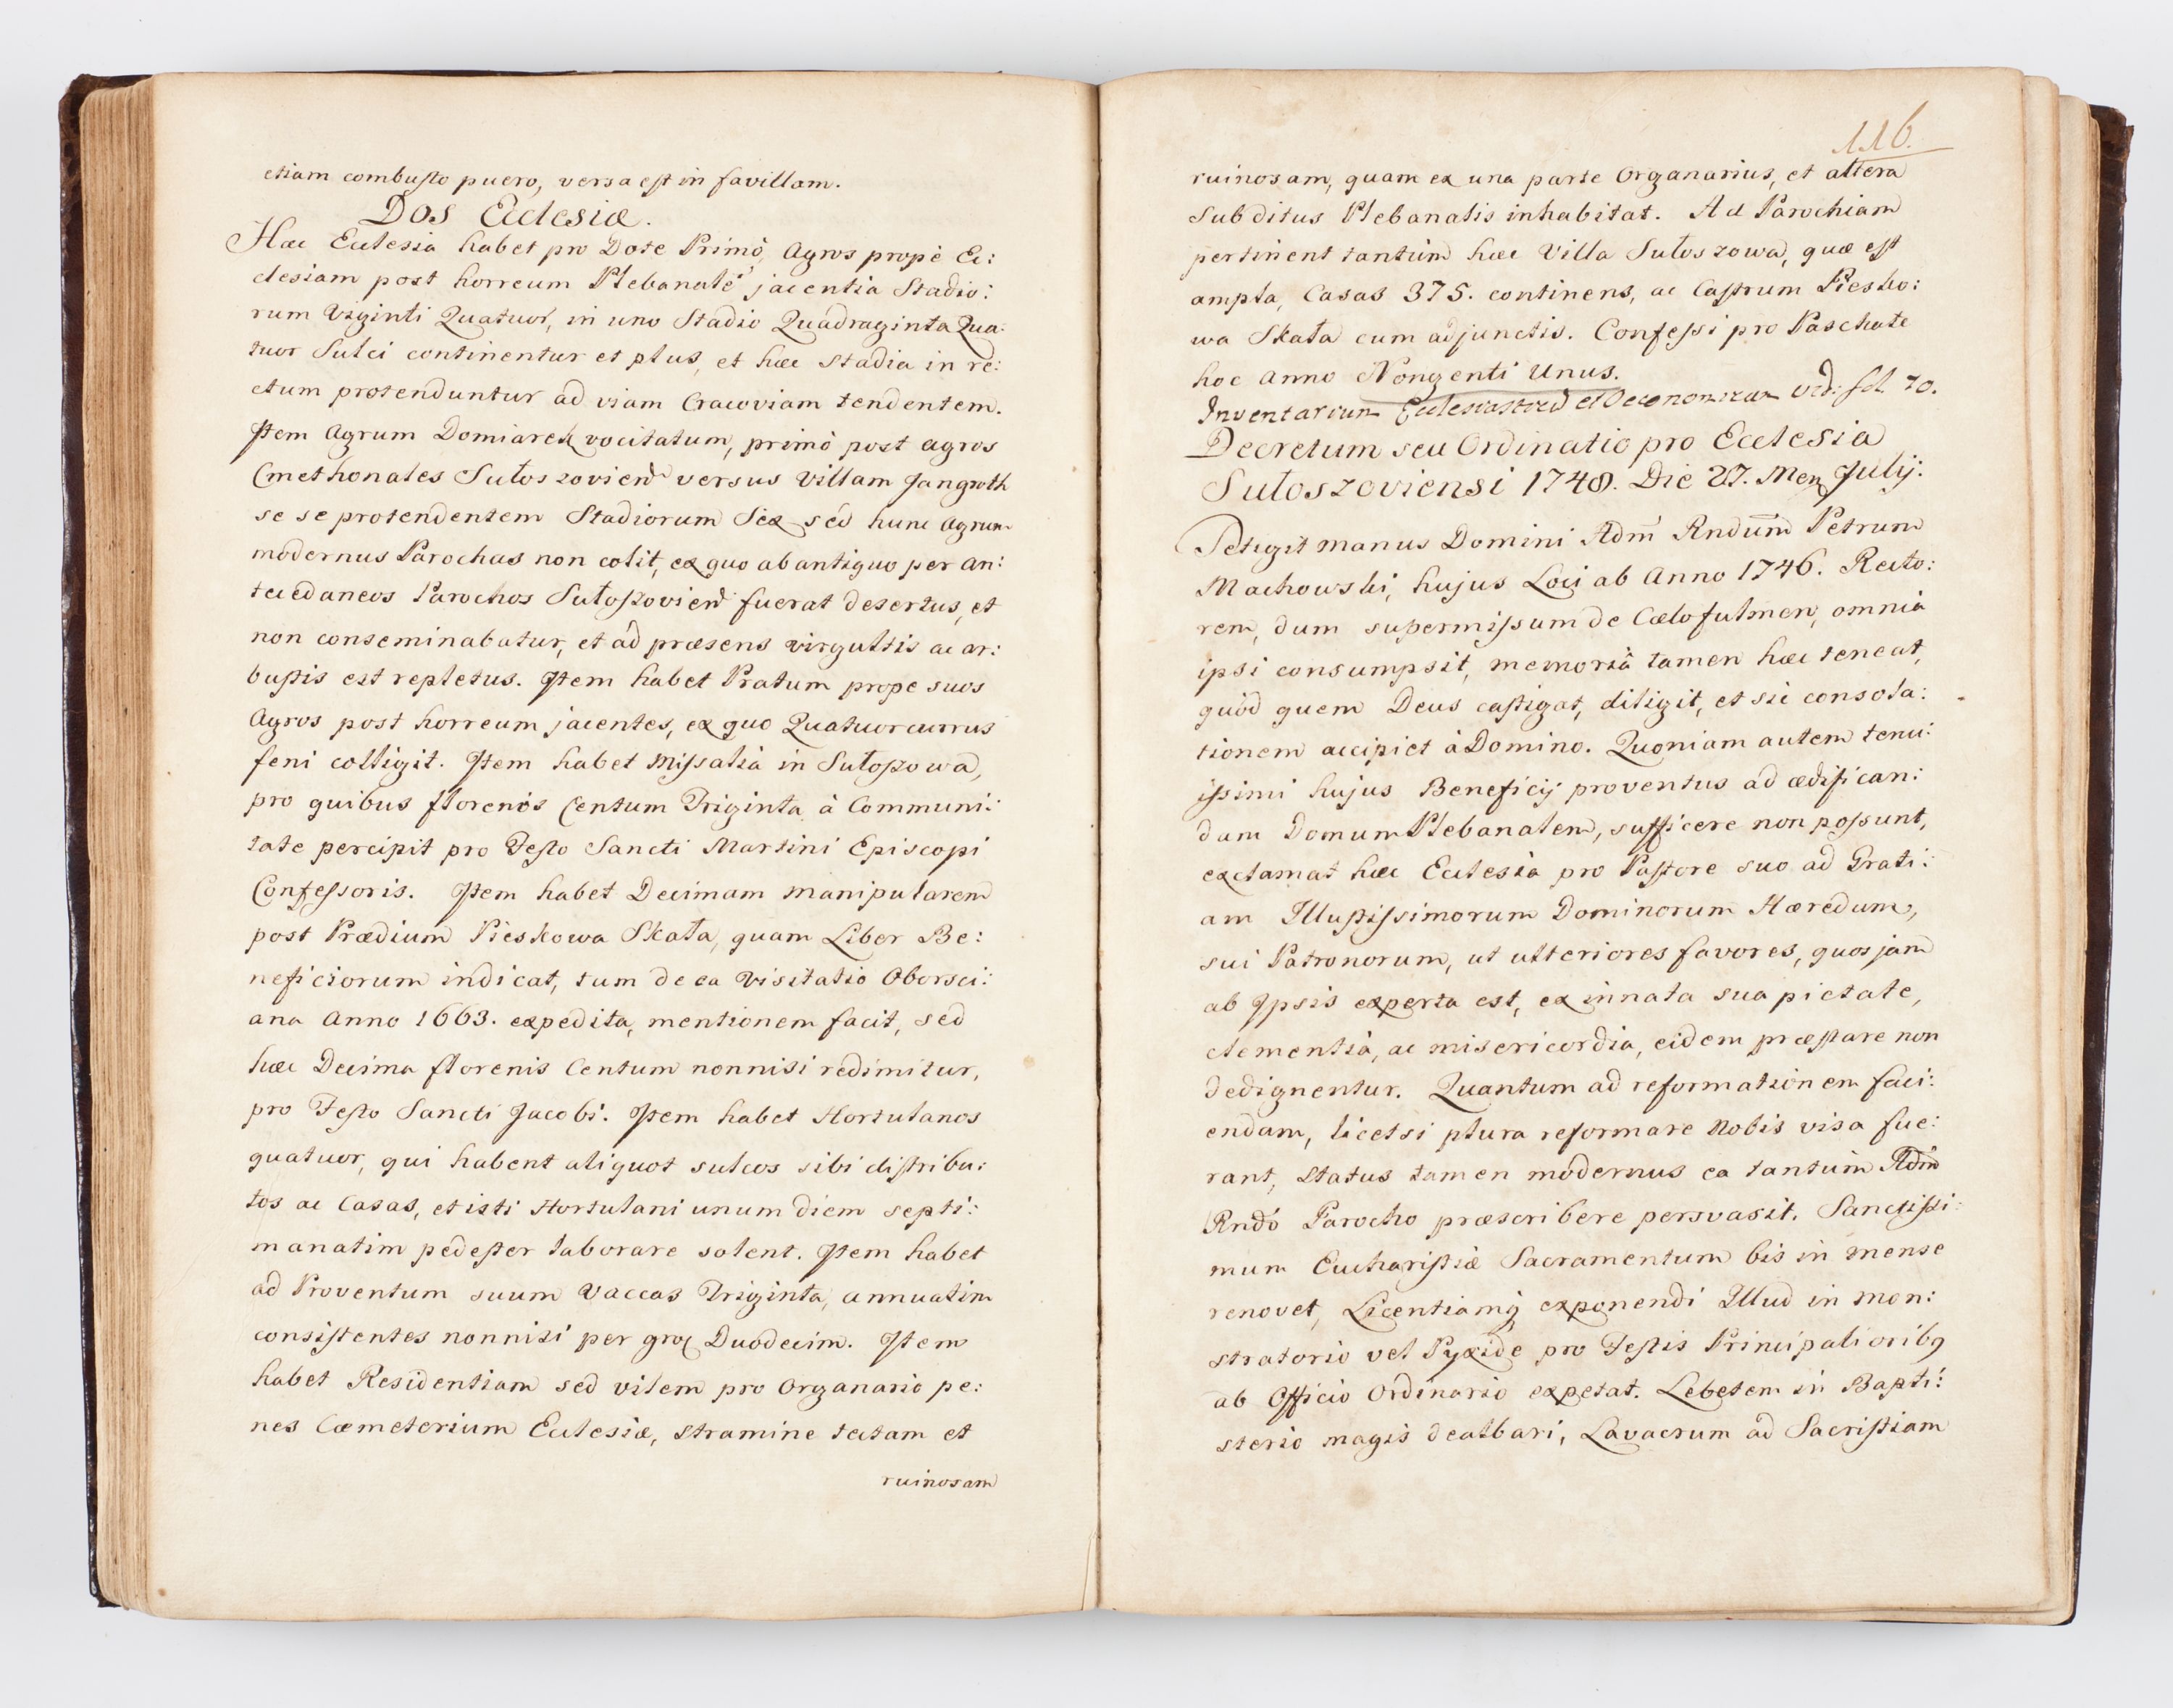 etiam combusto puero, versa est in favillam.
Dos Ecclesiæ.
Hæc Ecclesia habet pro Dote Primò, Agros propè Ec:
clesiam post horreum Plebanale jacentia Stadio:
rum Viginti Quatuor, in uno Stadio Quadraginta Qua:
tuor Sulci continentur et plus, et hæc stadia in re:
ctum protenduntur ad viam Cracoviam tendentem.
Item Agrum Domiarek vocitatum, primò post agros
Cmethonales Sułoszovien versus Villam Jangroth
se se protendentem Stadiorum Sex sed hunc Agrum
modernus Parochus non colit, ex quo ab antiquo per an:
tecedaneos Parochos Sułoszovien fuerat desertus, et
non conseminabatur, et ad præsens virgultis ac ar:
bustis est repletus. Item habet Pratum prope suos
Agros post horreum jacentes, ex quo Quatuor currus
feni colligit. Item habet Missalia in Sułoszowa,
pro quibus florenos Centum Triginta à Communi:
tate percipit pro Festo Sancti Martini Episcopi
Confessoris. Item habet Decimam manipularem
post Prædium Pieskowa Skała, quam Liber Be:
neficiorum indicat, tum de ea Visitatio Oborsci:
ana Anno 1663. expedita, mentionem facit, sed
hæc Decima florenis Centum nonnisi redimitur,
pro Festo Sancti Jacobi. Item habet Hortulanos
quatuor, qui habent aliquot sulcos sibi distribu:
tos ac Casas, et isti Hortulani unum diem septi:
manatim pedester laborare solent. Item habet
ad Proventum suum Vaccas Triginta, annuatim
consistentes nonnisi per gros Duodecim. Item
habet Residentiam sed vilem pro Organario pe:
nes Cæmeterium Ecclesiæ, stramine tectam et
ruinosam
116.
ruinosam, quam ex una parte Organarius, et altera
Subditus Plebanalis inhabitat. Ad Parochiam
pertinent tantùm hæc Villa Sułoszowa, quæ est
ampla, Casas 375. continens, ac Castrum Piesko:
wa Skała cum adjunctis. Confessi pro Paschate
hoc anno Nongenti Unus.
Inventarium Ecclesiasticu et Oeconomicum Vid: fol. 70.
Decretum seu Ordinatio pro Ecclesia
Sułoszoviensi 1748. Die 27. Men Julij.
Tetigit manus Domini Adm Rndum Petrum
Machowski, hujus Loci ab Anno 1746. Recto:
rem, dum supermissum de Cælo fulmen, omnia
ipsi consumpsit, memoriâ tamen hæc teneat,
quòd quem Deus castigat, diligit, et sic consola:
tionem accipiet à Domino. Quoniam autem tenu:
issimi hujus Beneficij proventus ad ædifican:
dam Domum Plebanalem, sufficere non possunt,
exclamat hæc Ecclesia pro Pastore suo ad Grati:
am Illustissimorum Dominorum Hæredum,
sui Patronorum, ut ulteriores favores, quos jam
ab Ipsis experta est, ex innata sua pietate,
clementia, ac misericordia, eidem præstare non
dedignentur. Quantum ad reformationem faci:
endam, licetsi plura reformare Nobis visa fue:
rant, status tamen modernus ea tantùm Adm
Rndo Parocho præscribere persvasit. Sanctissi:
mum Eucharistiæ Sacramentum bis in mense
renovet, Licentiamq; exponendi Illud in mon:
stratorio vel Pyxide pro Festis Principalioribq
ab Officio Ordinario expetat. Lebetem in Bapti:
sterio magis dealbari, Lavacrum ad Sacristiam